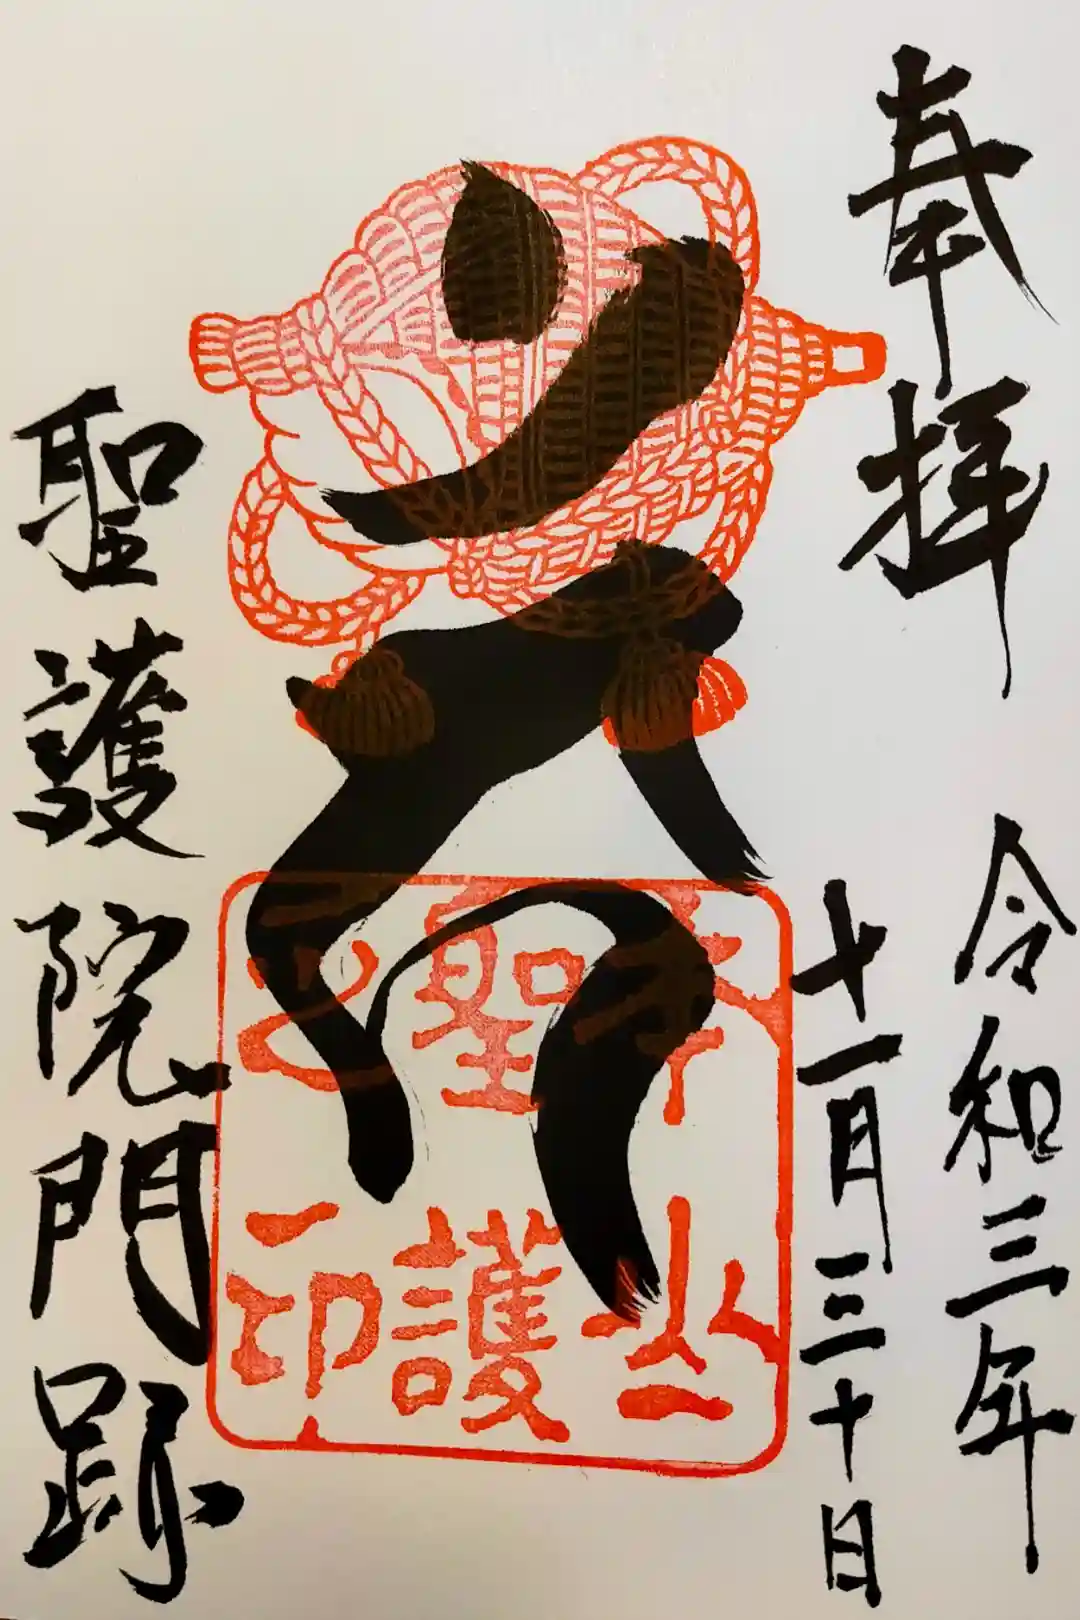 奉拝
令和三年
十一月三十日
聖護
印
聖護院門跡